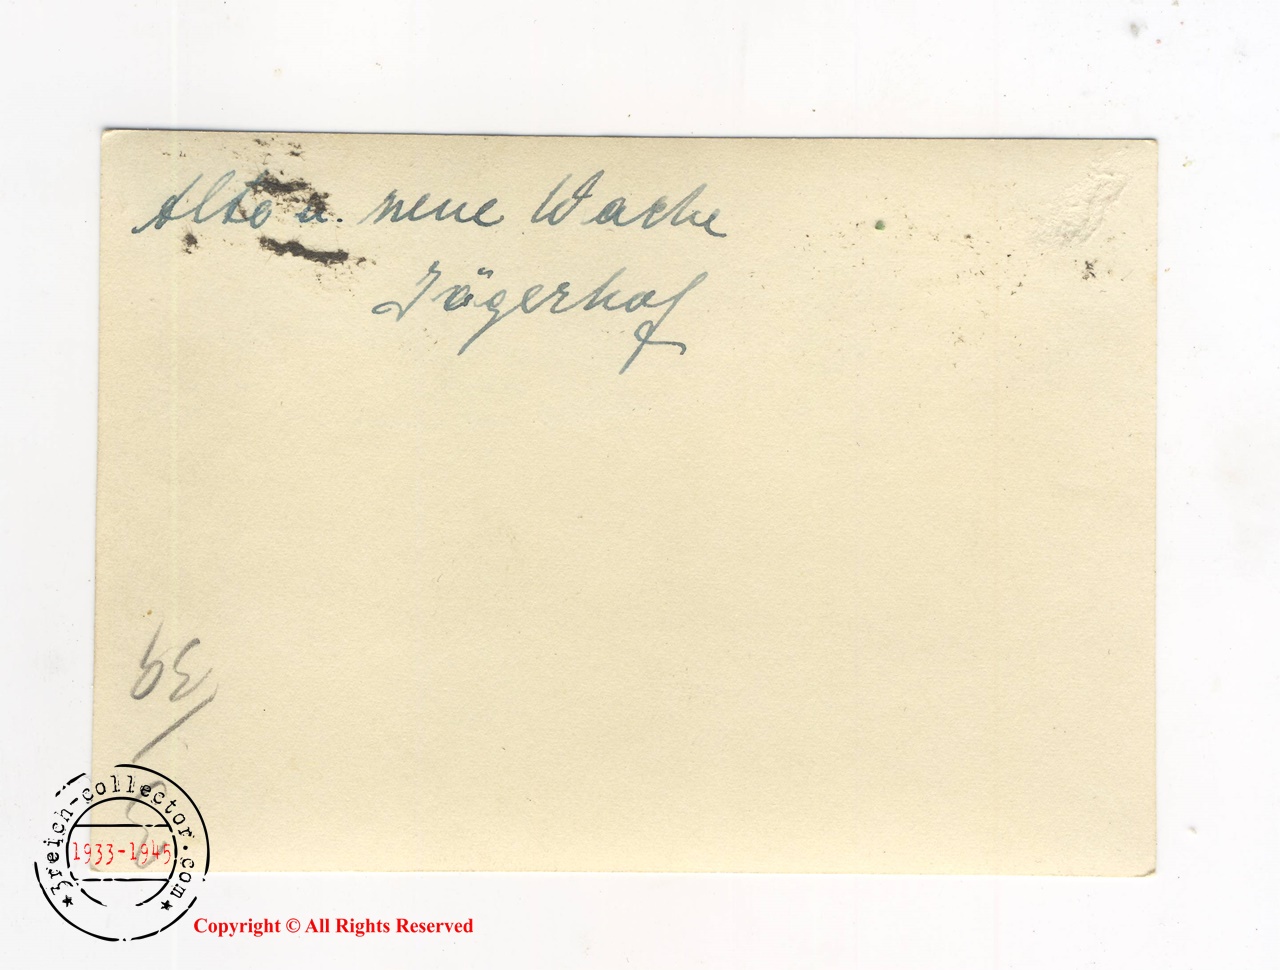 Alte u. neue Wache
Jägerhof
3reich-collector.com
1933-1945
Copyright © All Rights Reserved